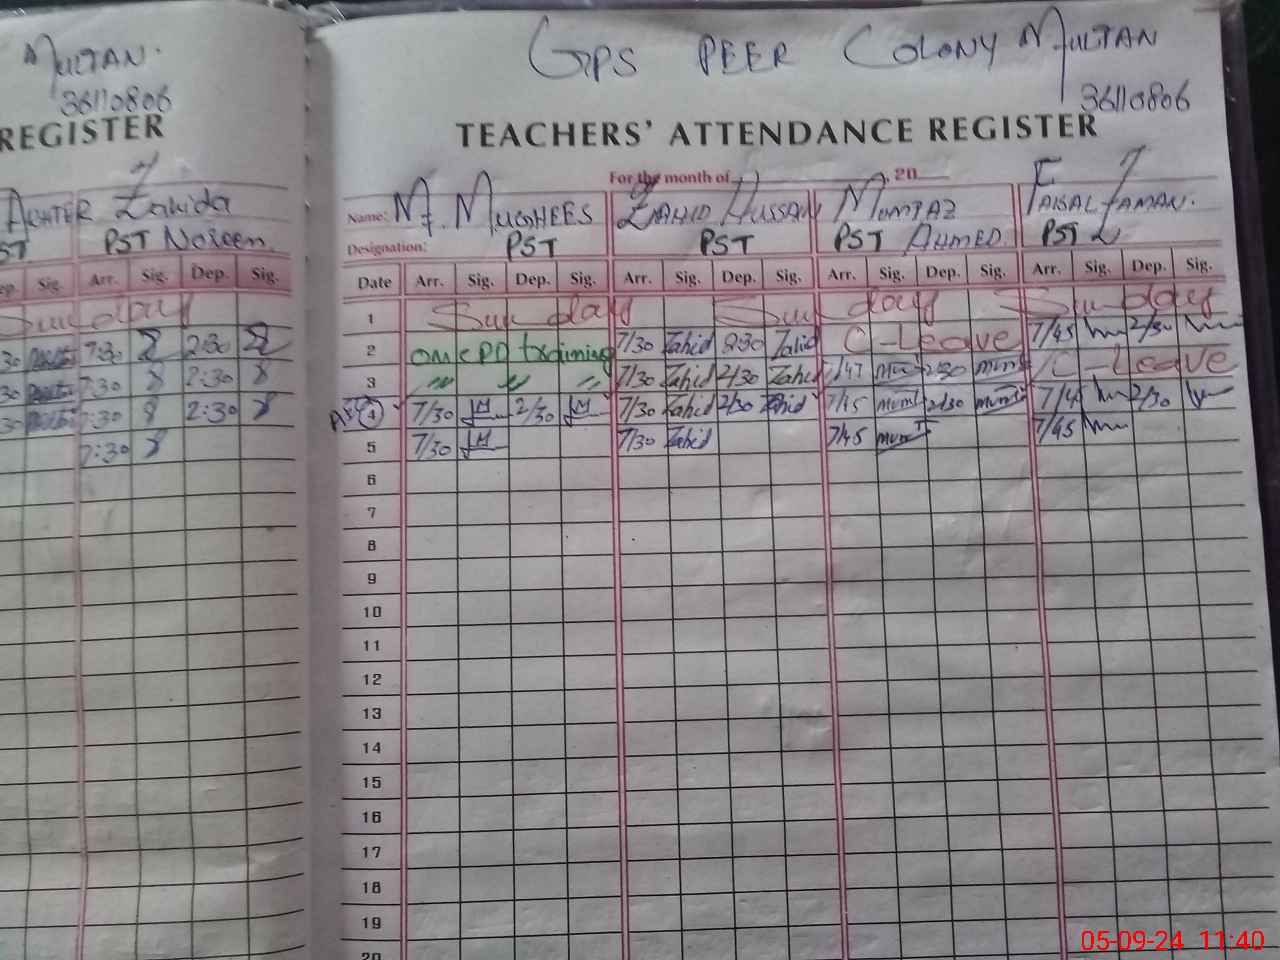 MULTAN.
36110806
REGISTER
AKHTER Zahida
PST Noreen
Sig. Arr. Sig. Dep. Sig.
Sunday
7:30 2:30
7:30 2:30
7:30 2:30
7:30
GPS PEER COLONY MULTAN
36110806
TEACHERS' ATTENDANCE REGISTER
For the month of , 20
Name: M. MUGHEES ZAHID HUSSAIN MUMTAZ FAISAL ZAMAN.
Designation: PST PST PST AHMED PST
Date Arr. Sig. Dep. Sig. Arr. Sig. Dep. Sig. Arr. Sig. Dep. Sig. Arr. Sig. Dep. Sig.
1 Sunday Sunday Sunday
2 on CPD training 7/30 Zahid 2:30 Zahid C-Leave 7/45 2/30
3 " " " 7/30 Zahid 2/30 Zahid 7/47 2/30 C-Leave
4 7/30 2/30 7/30 Zahid 2/30 Zahid 7/45 2/30 7/45 2/30
5 7/30 7/30 Zahid 7/45 7/45
6
7
8
9
10
11
12
13
14
15
16
17
18
19
20
05-09-24 11:40